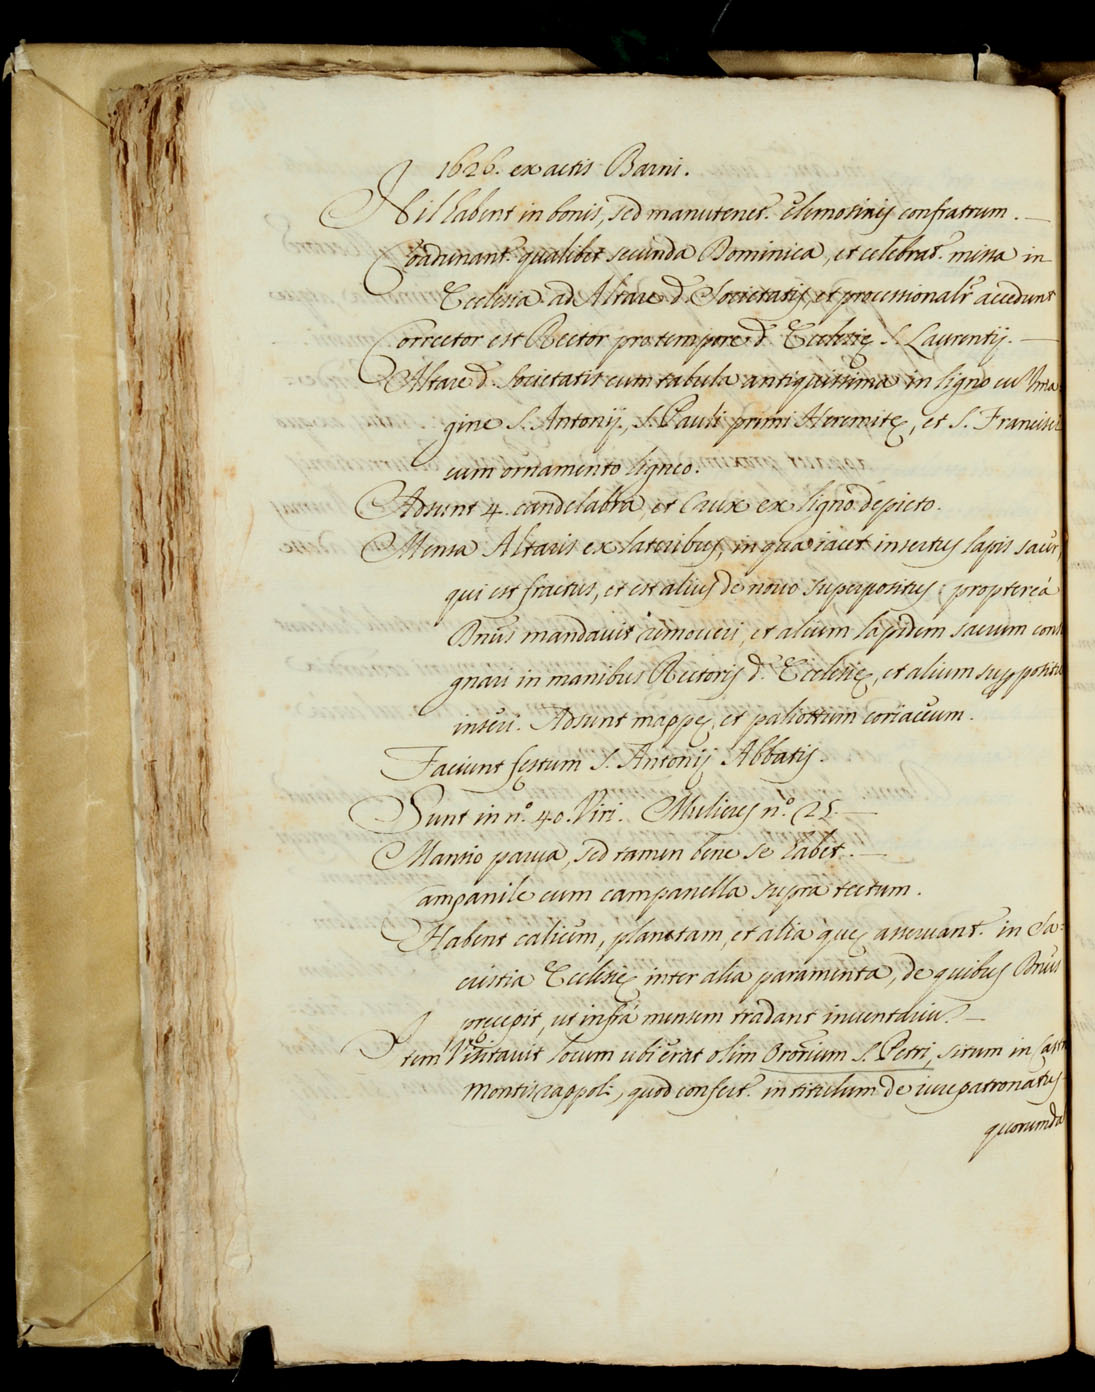 1626. ex actis Barni.
Nil habent in bonis, sed manutenet. elemosinis confratrum.
Coadunant. qualibet secunda Dominica, et celebrat. missa in
Ecclesia ad Altare d. Societatis, et processionalr accedunt
Corrector est Rector pro tempore d. Ecclesię S. Laurentij.
Altare d. Societatis cum tabula antiquissima in ligno cu Ima=
gine S. Antonij, S. Pauli primi Heremitę, et S. Francisci
cum ornamento ligneo.
Adsunt 4. candelabra, et Crux ex ligno depicto.
Mensa Altaris ex lateribus, in qua iacet insertus lapis sacer,
qui est fractus, et est alius de nouo superpositus: propterea
Dnus mandauit remoueri, et alium lapidem sacrum consi
gnari in manibus Rectoris d. Ecclesię, et alium suppositu
inseri. Adsunt mappę, et paliottum coriaceum.
Faciunt festum S. Antonij Abbatis.
Sunt in n.º 40. Viri. Mulieres n.º 25.
Mansio parua, sed tamen bene se habet.
Campanile cum campanella supra tectum.
Habent calicem, planetam, et alia quę asseruant. in Sa=
cristia Ecclesię inter alia paramenta, de quibus Dnus
pręcepit, ut infrà mensem tradant inuentariu.
Item Visitauit locum ubi erat olim Ororium S. Petri, situm in Castr
Montisrappoli, quod confert. in titulum de iure patronatus
quorunda